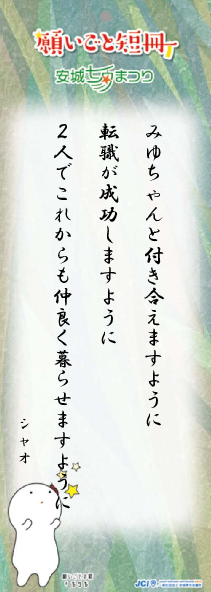 願いごと短冊
安城七夕まつり
みゆちゃんと付き合えますように
転職が成功しますように
2人でこれからも仲良く暮らせますように
シャオ
JCI